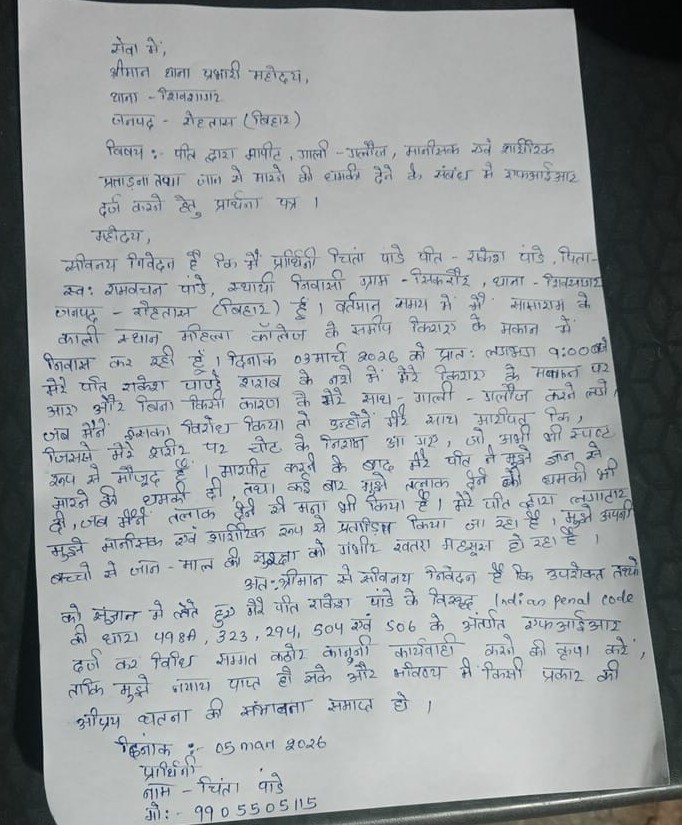 सेवा में,
श्रीमान थाना प्रभारी महोदय,
थाना - शिवसागर
जनपद - रोहतास (बिहार)
विषय :- पति द्वारा मारपीट, गाली - गलौज, मानसिक एवं शारीरिक
प्रताड़ना तथा जान से मारने की धमकी देने के, संबंध में एफआईआर
दर्ज करने हेतु प्रार्थना पत्र ।
महोदय,
सविनय निवेदन है कि मैं प्रार्थिनी चिंता पांडे पति - राकेश पांडे, पिता-
स्व: रामवचन पांडे, स्थायी निवासी ग्राम - सिकरौर, थाना - शिवसागर
जनपद - रोहतास (बिहार) हूँ । वर्तमान समय में मैं सासाराम के
काली स्थान महिला कॉलेज के समीप किराए के मकान में
निवास कर रही हूँ । दिनांक 03 मार्च 2026 को प्रात: लगभग 9:00 बजे
मेरे पति राकेश पाण्डे शराब के नशे में मेरे किराए के मकान पर
आए और बिना किसी कारण के मेरे साथ - गाली - गलौज करने लगे,
जब मैंने इसका विरोध किया तो उन्होंने मेरे साथ मारपीट कि,
जिससे मेरे शरीर पर चोट के निशान आ गए, जो अभी भी स्पष्ट
रूप से मौजूद हैं । मारपीट करने के बाद मेरे पति ने मुझे जान से
मारने की धमकी दी, तथा कई बार मुझे तलाक देने की धमकी भी
दी, जब मैंने तलाक देने से मना भी किया है । मेरे पति द्वारा लगातार
मुझे मानसिक एवं शारीरिक रूप से प्रताड़ित किया जा रहा है, मुझे अपनी
बच्चो से जान - माल की सुरक्षा को गंभीर खतरा महसूस हो रहा है ।
अत: श्रीमान से सविनय निवेदन है कि उपरोक्त तथ्यो
को संज्ञान में लेते हुए मेरे पति राकेश पांडे के विरुद्ध Indian penal code
की धारा 498A, 323, 294, 504 एवं 506 के अंतर्गत एफआईआर
दर्ज कर विधि सम्मत कठोर कानूनी कार्यवाही करने की कृपा करें,
ताकि मुझे न्याय प्राप्त हो सके और भविष्य में किसी प्रकार की
अप्रिय घटना की संभावना समाप्त हो ।
दिनांक :- 05 mar 2026
प्रार्थिनी
नाम - चिंता पांडे
मो:- 9905505115